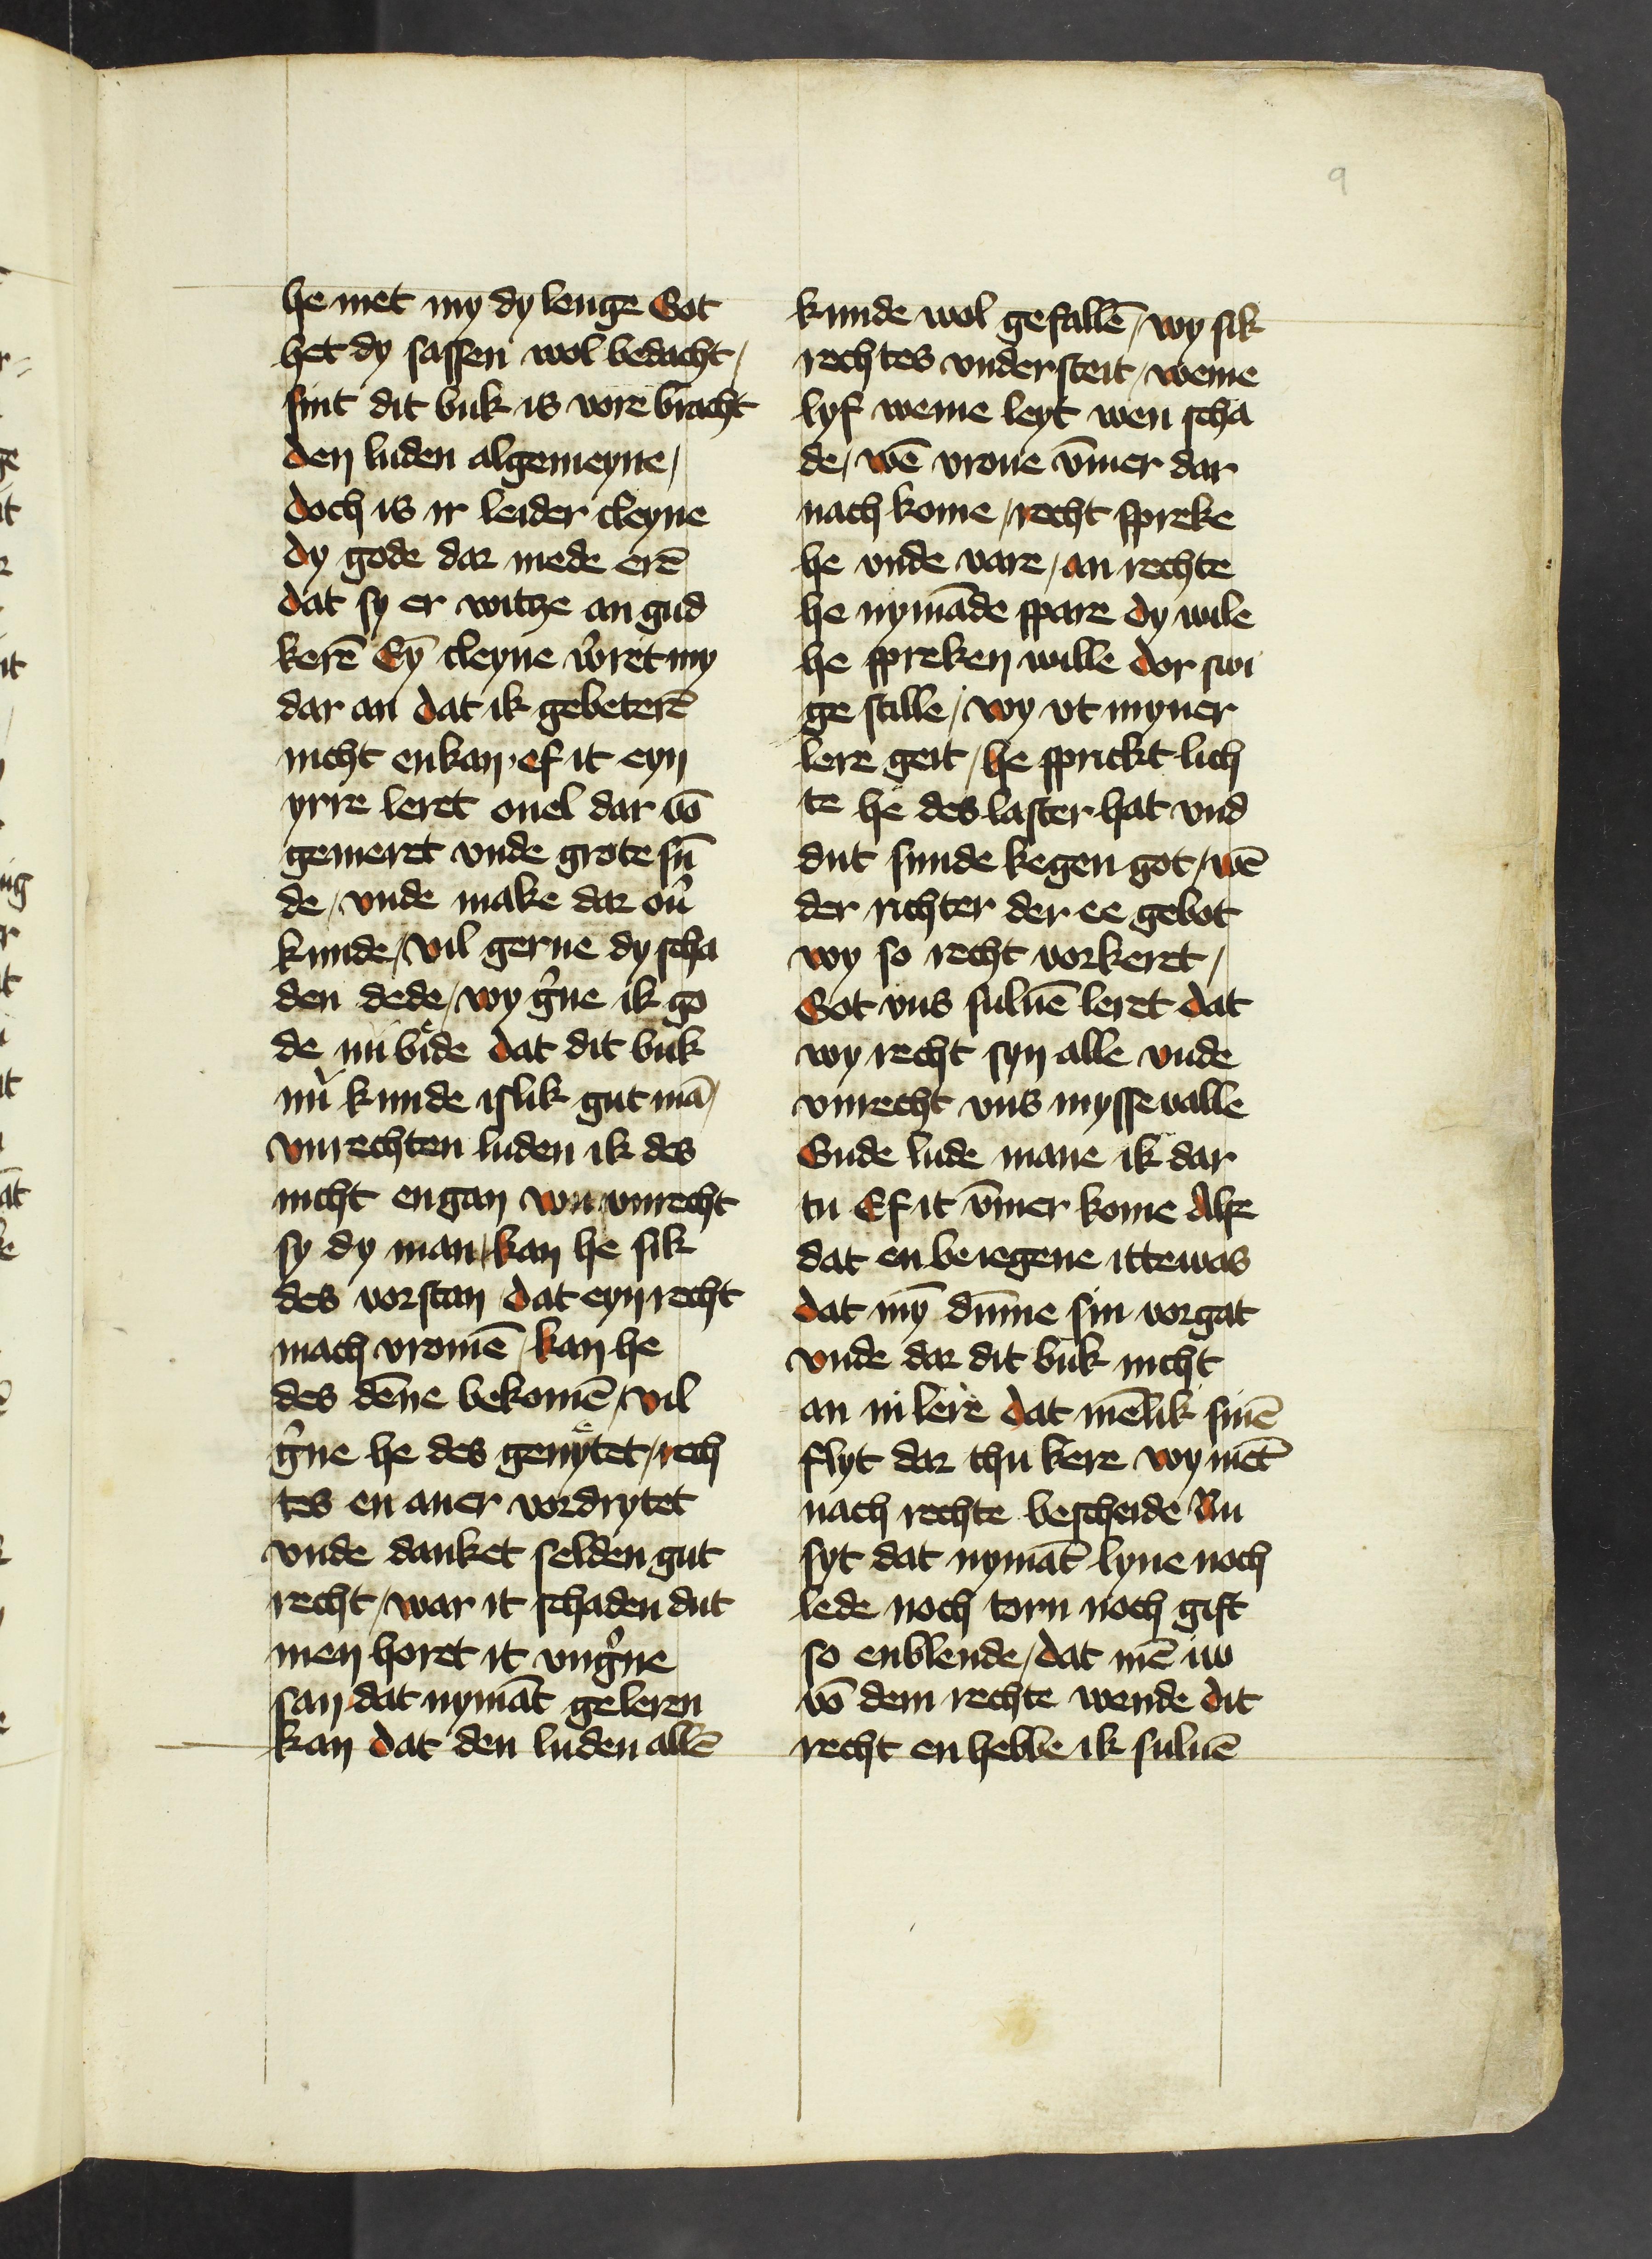 9
he met my dy lenge Got
het dy sassen wol bedacht /
sint dit buk is vore bracht
den luden algemeyne /
doch is ir leider cleyne
dy gode dar mede erē
dat sy er witze an gud
kerē Eȳ cleyne v̉ret my
dar an dat ik gebeterē
nicht enkan · ef it eyn
yrre leret ouel dar vō
gemeret vnde grote sū
de / vnde make dar ou̓
kunde / vil gerne dy scha
den dede / wy g̓ne ik go
de nū bide dat dit buk
mu̓ kunde islik gut mā /
vnrechten luden ik des
nicht engan wu vnrecht
sy dy man / kan he sik
des vorstan dat eyn recht
mach vromē / kan he
des dēne bekomē / vil
g̓ne he des genÿtet / rech
tes en auer vordrytet
vnde danket selden gut
recht / war it schaden dut
men horet it vng̓ne
san dat nymāt geleren
kan dat den luden allē
kunde wol gefallē / wy sik
rechtes vndersteit / weme
lyf weme leyt wen scha
de / wē vrone v̄mer dar
nach kome / recht spreke
he vnde vare / an rechte
he nymāde spare dy wile
he spreken wille dor swi
ge stille / wy vt myner
lere geit / he sprickt lich
te he des laster hat vnd
dut sunde kegen got / wē
der richter der ee gebot
wy so recht vorkeret /
Got vns suluē leret dat
wy recht syn alle vnde
vnrecht vns mysse valle
Gude lude mane ik dar
tu Ef it v̄mer kome Alse
dat en beiegene ittewas
dat mȳ dūme sin vorgat
vnde dar dit buk nicht
an ni lere dat mēlik sinē
flyt dar thu kere wy met̄
nach rechte bescheide Nu
syt dat nymāt lyue noch
lede noch torn noch gift
so enblende / dat mē iw
vō dem rechte wende dit
recht en hebbe ik suluē